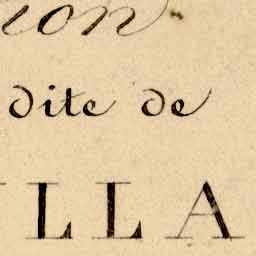 ion
dite de
LLA